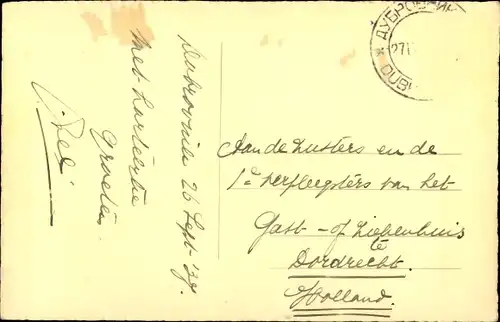 Dubrovnik 26 Sept '29.
Met hartelijke
groeten
Aan de zusters en de
1e verpleegsters van het
Gast- of Ziekenhuis
te
Dordrecht.
Holland.
ДУБРОВНИК
27
DUB